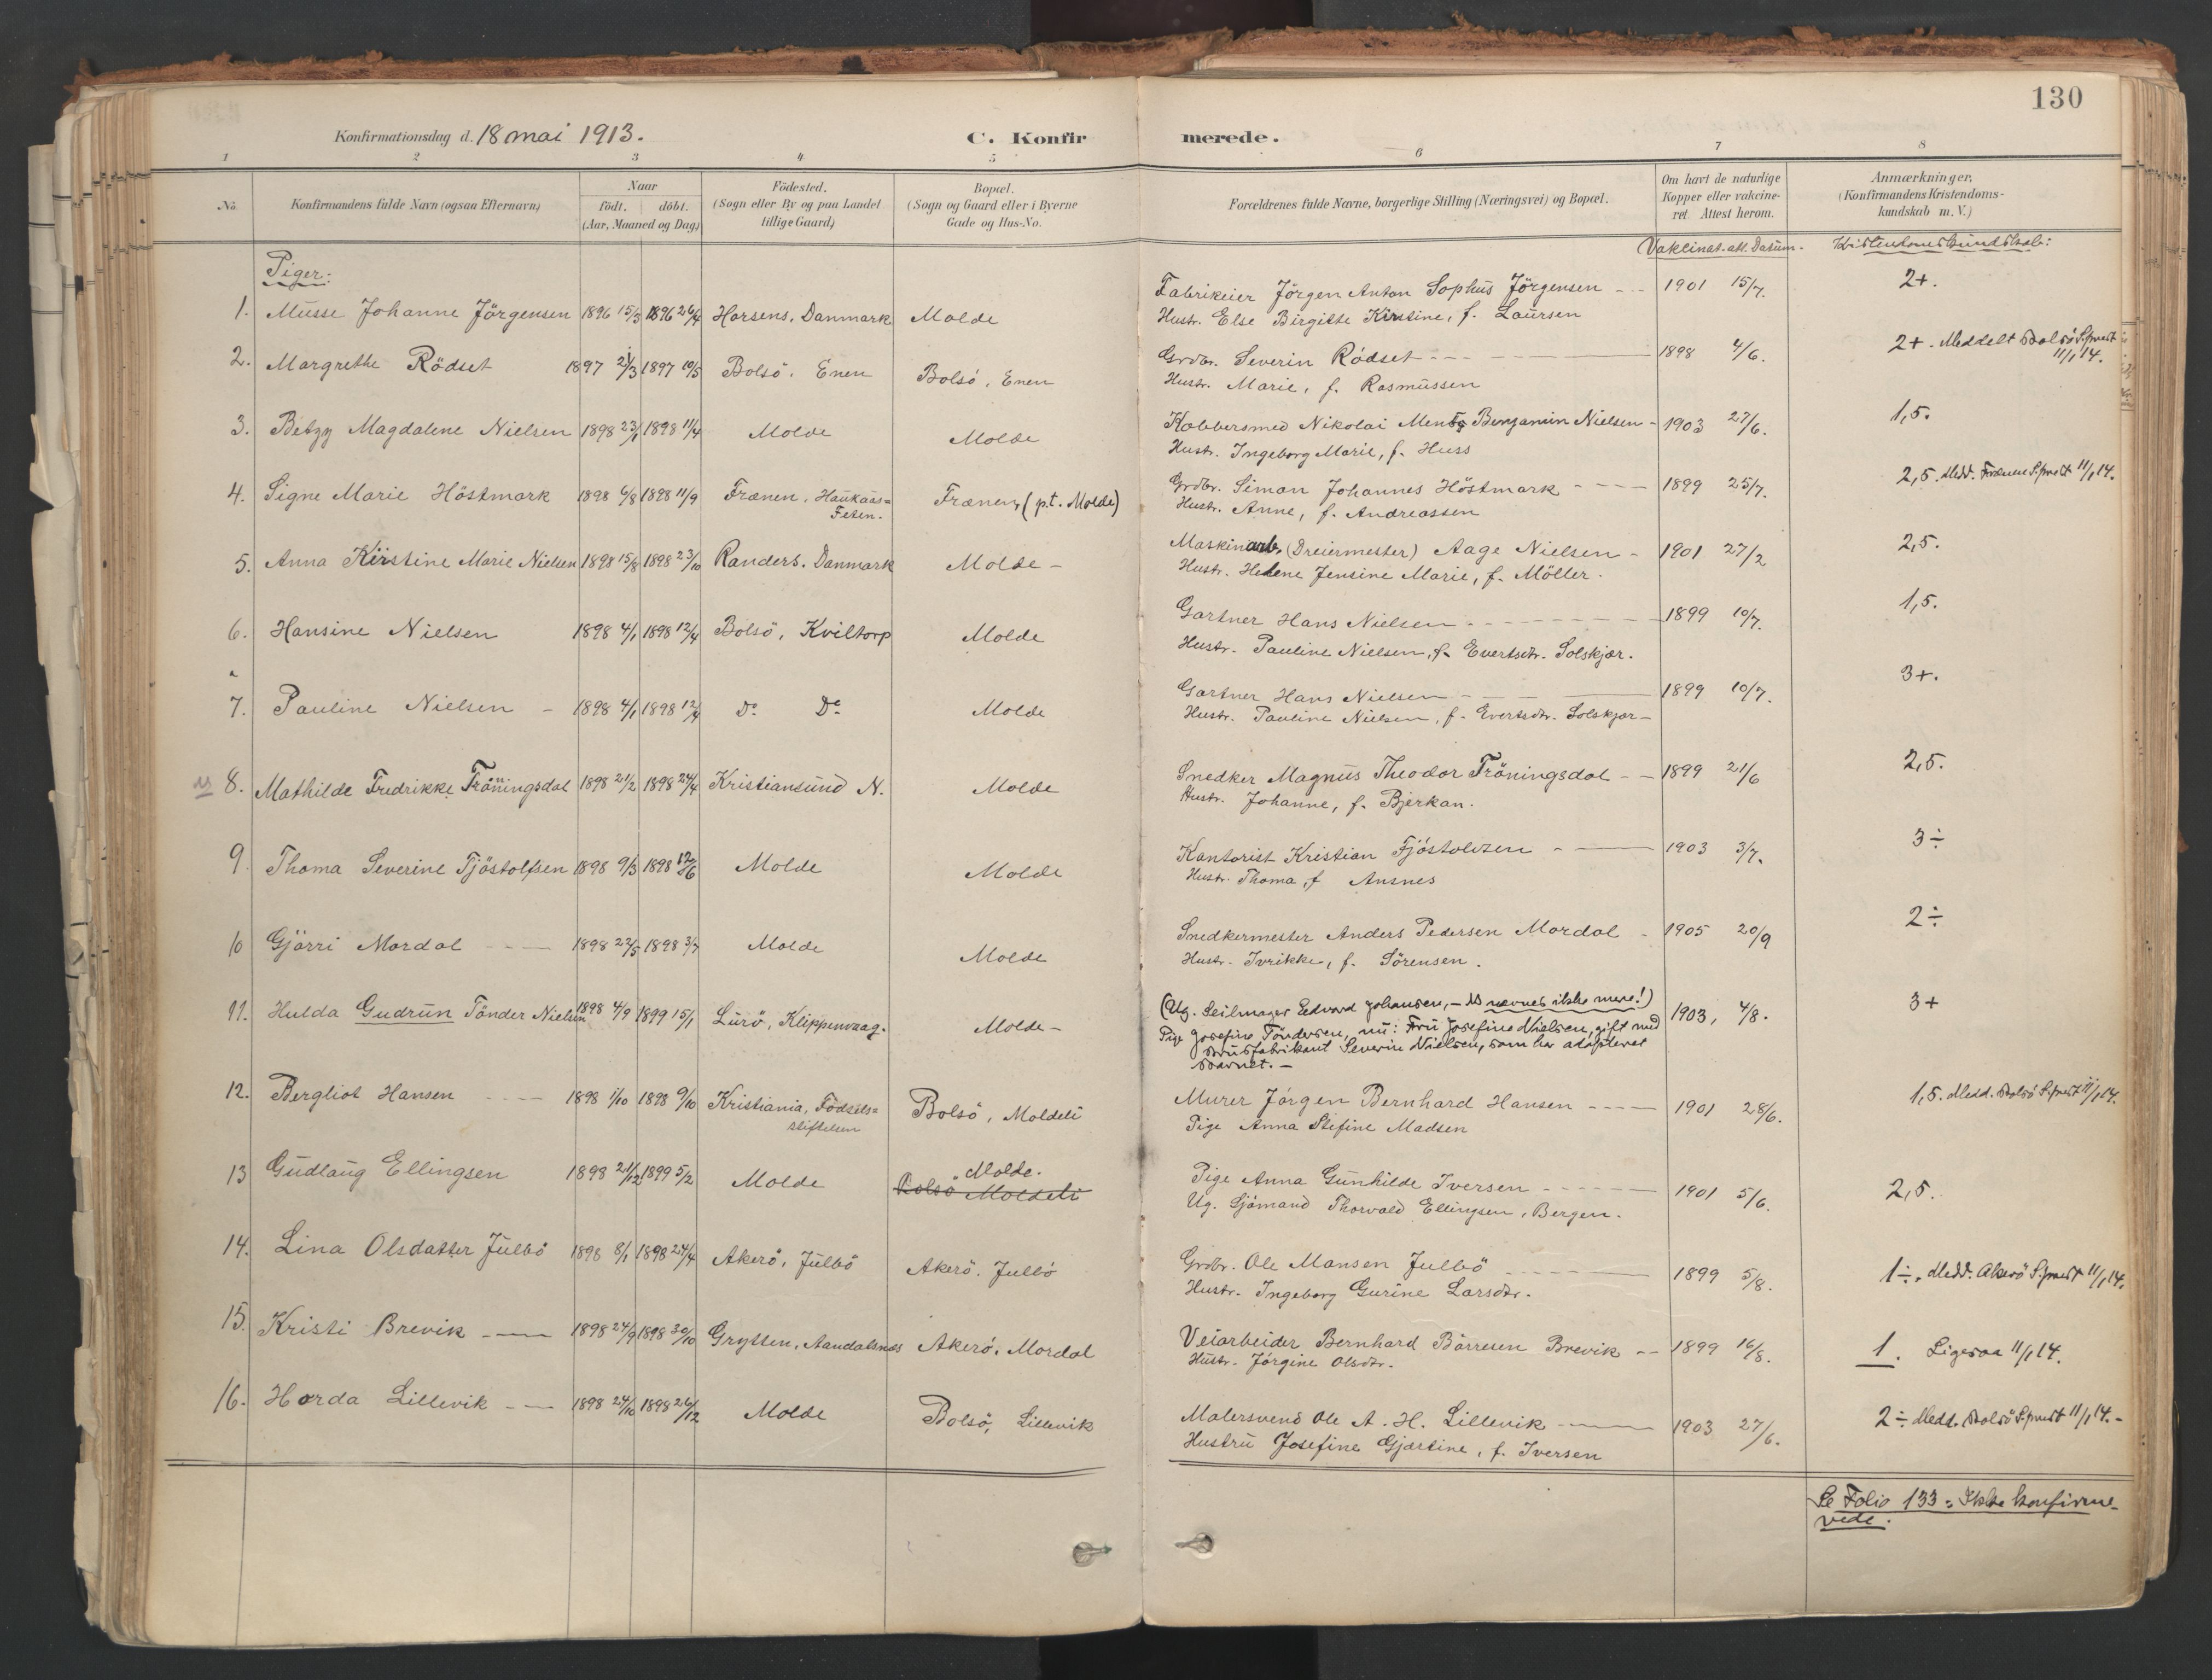 130
Konfirmationsdag d. 18 mai 1913.
C. Konfirmerede.
1 2 3 4 5 6 7 8
No.
Konfirmandens fulde Navn (ogsaa Efternavn)
Naar
födt. döbt.
(Aar, Maaned og Dag)
Födested.
(Sogn eller By og paa Landet
tillige Gaard)
Bopæl.
(Sogn og Gaard eller i Byerne
Gade og Hus-No.
Forældrenes fulde Navne, borgerlige Stilling (Næringsvei) og Bopæl.
Om havt de naturlige
Kopper eller vakcine-
ret. Attest herom.
Anmærkninger.
(Konfirmandens Kristendoms-
kundskab m. V.)
Vakcinat. att. Datum. Kristendomskundskab:
Piger:
1. Musse Johanne Jörgensen 1896 15/3 1896 26/4 Horsens, Danmark Molde
Fabrikeier Jörgen Anton Sophus Jörgensen 1901 15/7. 2+.
Hustr. Else Birgitte Kirstine, f. Laursen
2. Margrethe Rödset 1897 2/3 1897 10/5 Bolsö, Enen Bolsö, Enen
Grdbr. Severin Rödset 1898 4/6. 2+. Meddelt Bolsö S.prest
11/1 14.
Hustr. Marie, f. Rasmussen
3. Betzy Magdalene Nielsen 1898 23/1 1898 11/4 Molde Molde
Kobbersmed Nikolai Mentz Benjamin Nielsen - 1903 27/6. 1,5.
Hustr. Ingeborg Marie, f. Huss
4. Signe Marie Höstmark 1898 6/8 1898 11/9 Frænen, Haukaas=
Feten. Frænen, (p.t. Molde)
Grdbr. Simon Johannes Höstmark 1899 25/7. 2,5. Medd. Frænen S.prest 11/1 14.
Hustr. Anne, f. Andreassen
5. Anna Kirstine Marie Nielsen 1898 15/8 1898 23/10 Randers. Danmark Molde -
Maskinarb. (Dreiermester) Aage Nielsen - 1901 27/2 2,5.
Hustr. Helene Jensine Marie, f. Möller.
6. Hansine Nielsen 1898 4/1 1898 12/4 Bolsö, Kviltorp Molde
Gartner Hans Nielsen 1899 10/7. 1,5.
Hustr. Pauline Nielsen, f. Evertsdtr. Solskjær.
7. Pauline Nielsen - 1898 4/1 1898 12/4 Do Do Molde
Gartner Hans Nielsen 1899 10/7. 3+.
Hustr. Pauline Nielsen, f. Evertsdtr. Solskjær -
8. Mathilde Fredrikke Fröningsdal 1898 21/2 1898 24/4 Kristiansund N. Molde
Snedker Magnus Theodor Fröningsdal - - 1899 21/6 2,5.
Hustr. Johanne, f. Bjerkan.
9. Thoma Severine Fjöstolfsen 1898 9/3 1898 12/6 Molde Molde
Kontorist Kristian Fjöstolvsen 1903 3/7. 3÷
Hustr. Thoma, f Ausnes
10 Gjörri Mordal 1898 22/5 1898 3/7 Molde Molde
Snedkermester Anders Pedersen Mordal - 1905 20/9 2÷
Hustr. Ivrikke, f. Sörensen.
11. Hulda Gudrun Tönder Nielsen 1898 4/9 1899 15/1 Lurö, Klippenvaag. Molde -
(Ug. Seilmager Edvard Johansen, - As nævnes ikke mere!) 1903, 4/8. 3+
Pige Josefine Töndersen, nu: Fru Josefine Nielsen, gift med
Brusfabrikant Severin Nielsen, som har adopteret
Barnet. -
12. Bergliot Hansen 1898 1/10 1898 9/10 Kristiania, Födsels=
stiftelsen Bolsö, Moldeli
Murer Jörgen Bernhard Hansen 1901 28/6. 1,5. Medd. Bolsö S.prest 11/1 14.
Pige Anna Stefine Madsen
13 Gudlaug Ellingsen 1898 21/12 1899 5/2 Molde Molde.
Bolsö Moldeli
Pige Anna Gunhilde Iversen 1901 5/6. 2,5.
Ug. Sjömand Thorvald Ellingsen, Bergen.
14. Lina Olsdatter Julbö 1898 8/1 1898 24/4 Akerö, Julbö Akerö. Julbö
Grdbr. Ole Mansen Julbö 1899 5/8. 1÷, Medd. Akerö S.prest 11/1 14.
Hustr. Ingeborg Gurine Larsdtr.
15. Kristi Brevik 1898 24/9 1898 30/10 Grytten, Aandalsnes Akerö, Mordal
Veiarbeider Bernhard Börresen Brevik - - 1899 16/8. 1. Ligesaa 11/1 14.
Hustr. Jörgine Olsdtr.
16. Horda Lillevik 1898 24/10 1898 26/12 Molde Bolsö, Lillevik
Malersvend Ole A. H. Lillevik 1903 27/6. 2÷ Medd. Bolsö S.prest 11/1 14. -
Hustru Josefine Gjertine, f. Iversen
Se Folio 133: Ikke konfirme-
rede.